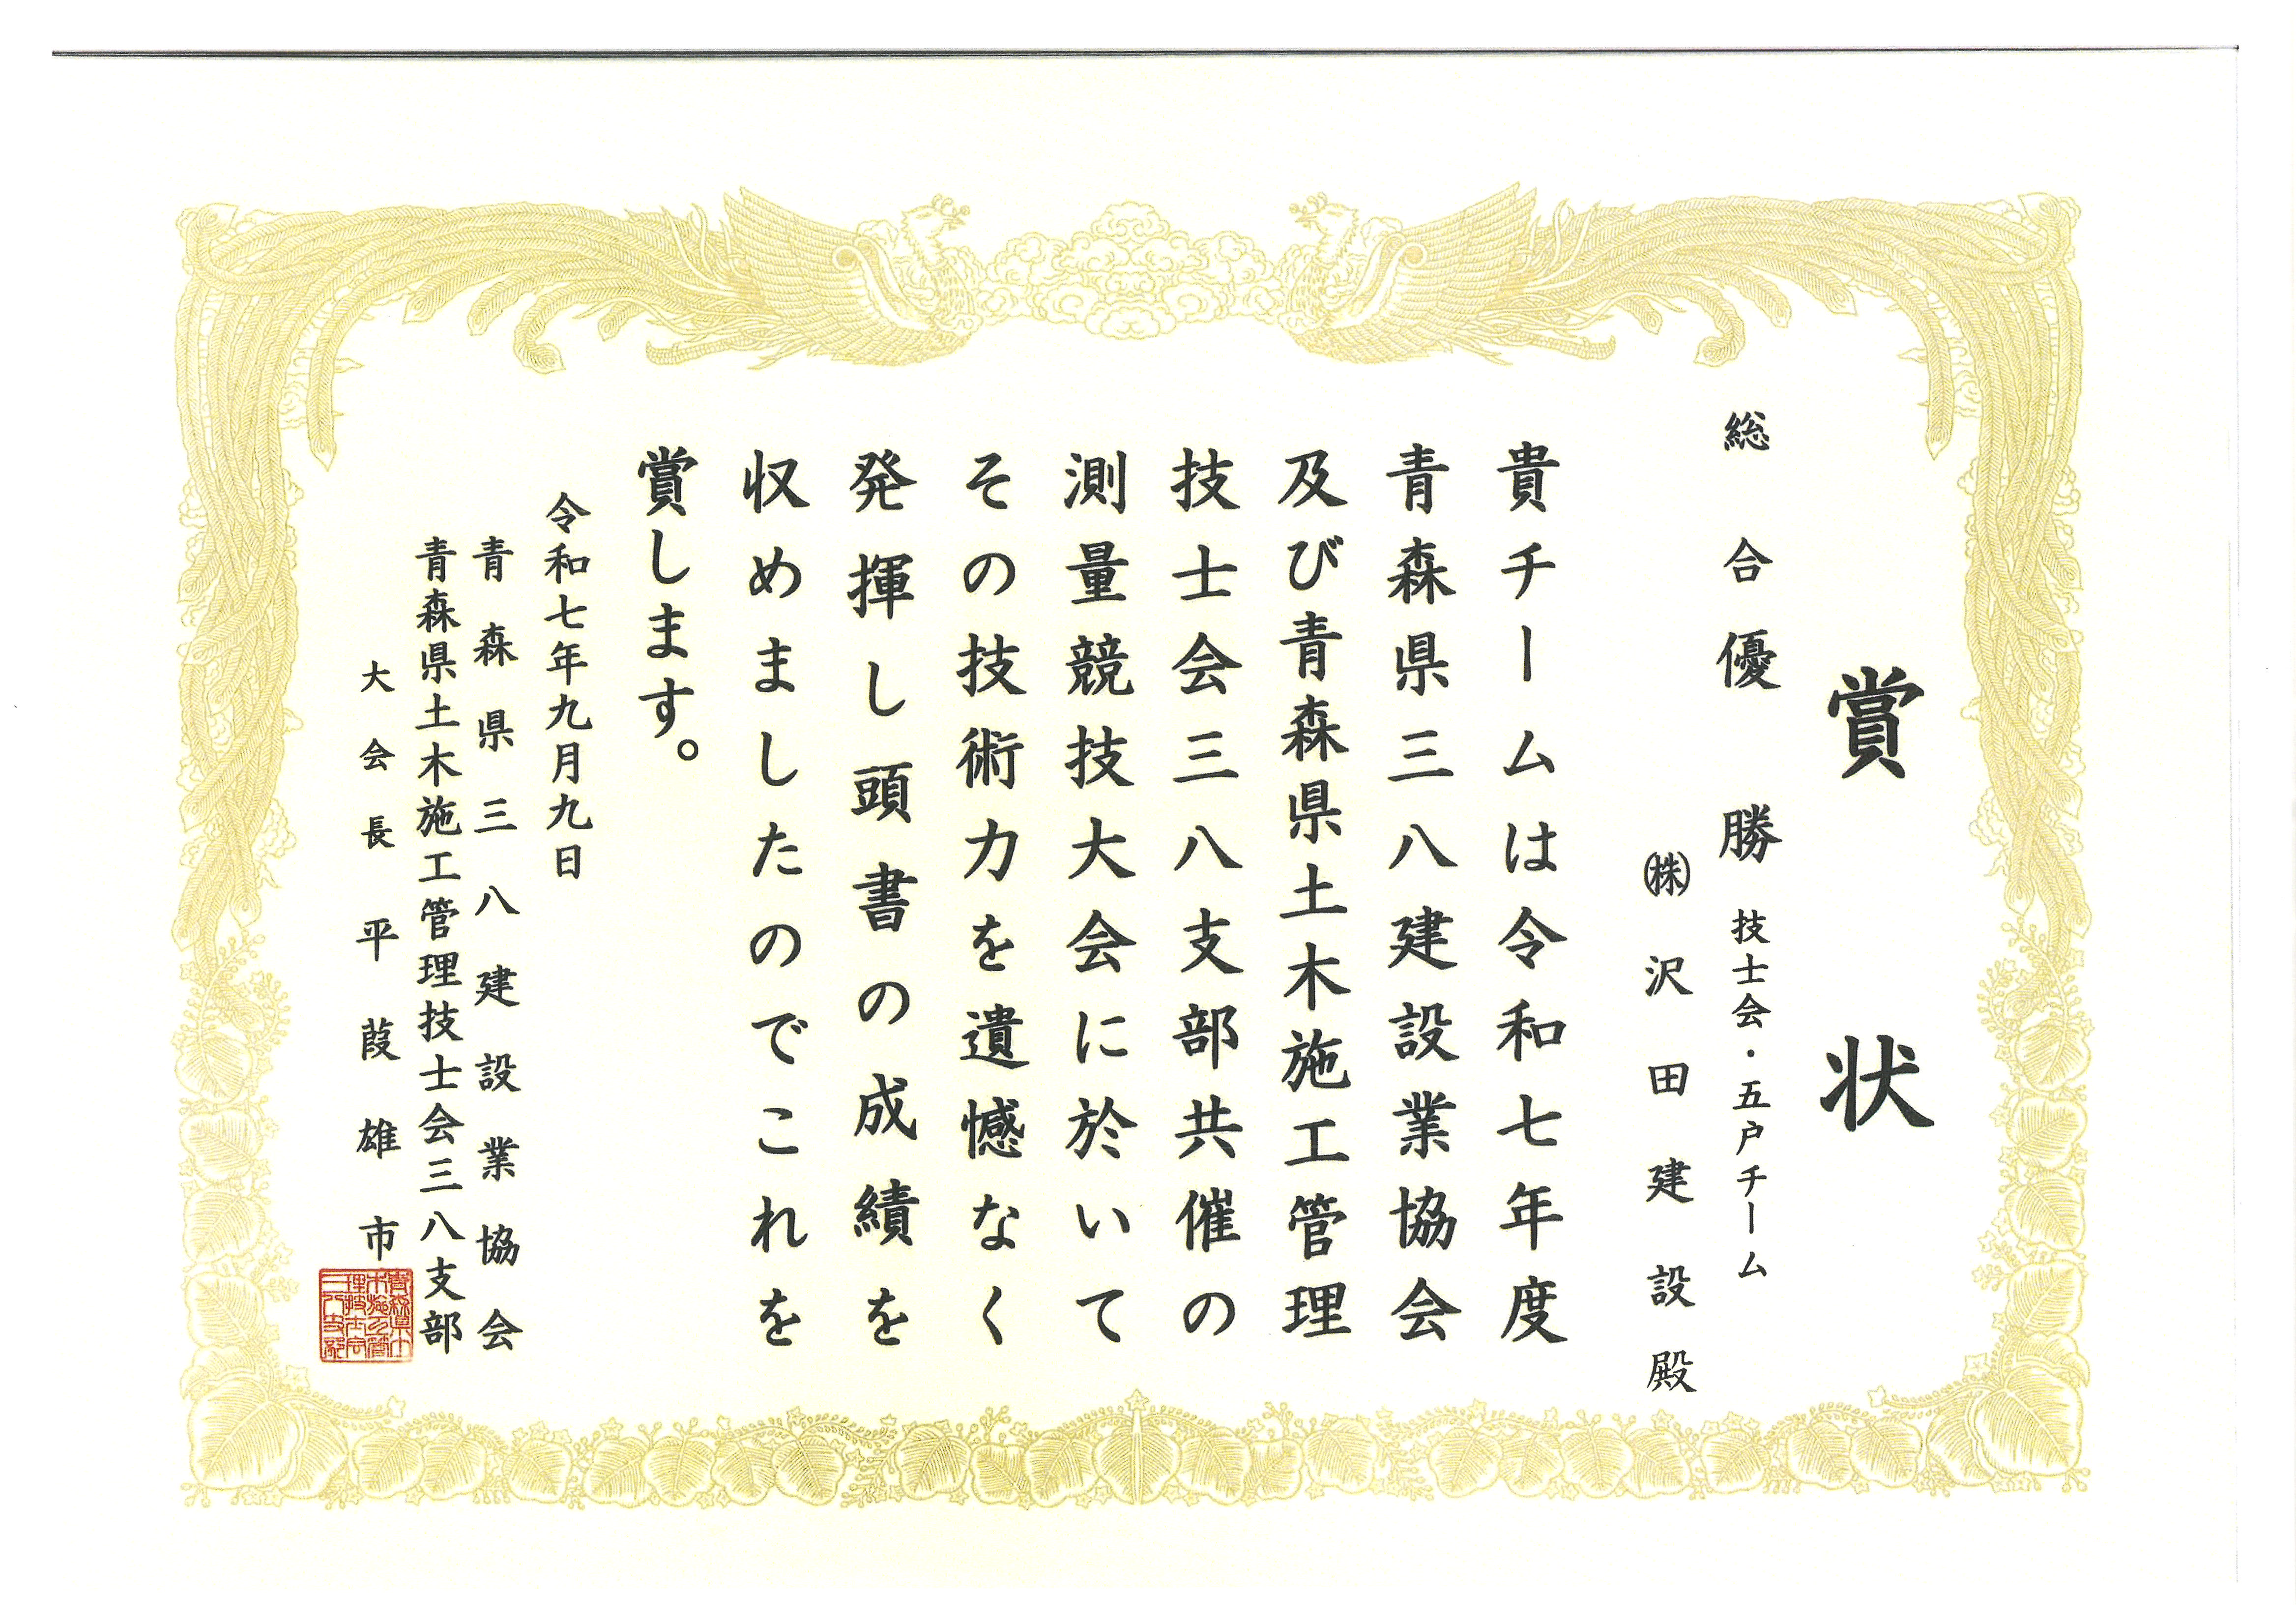 賞状
総合優勝 技士会・五戸チーム
㈱沢田建設殿
貴チームは令和七年度
青森県三八建設業協会
及び青森県土木施工管理
技士会三八支部共催の
測量競技大会に於いて
その技術力を遺憾なく
発揮し頭書の成績を
収めましたのでこれを
賞します。
令和七年九月九日
青森県三八建設業協会
青森県土木施工管理技士会三八支部
大会長 平葭雄市